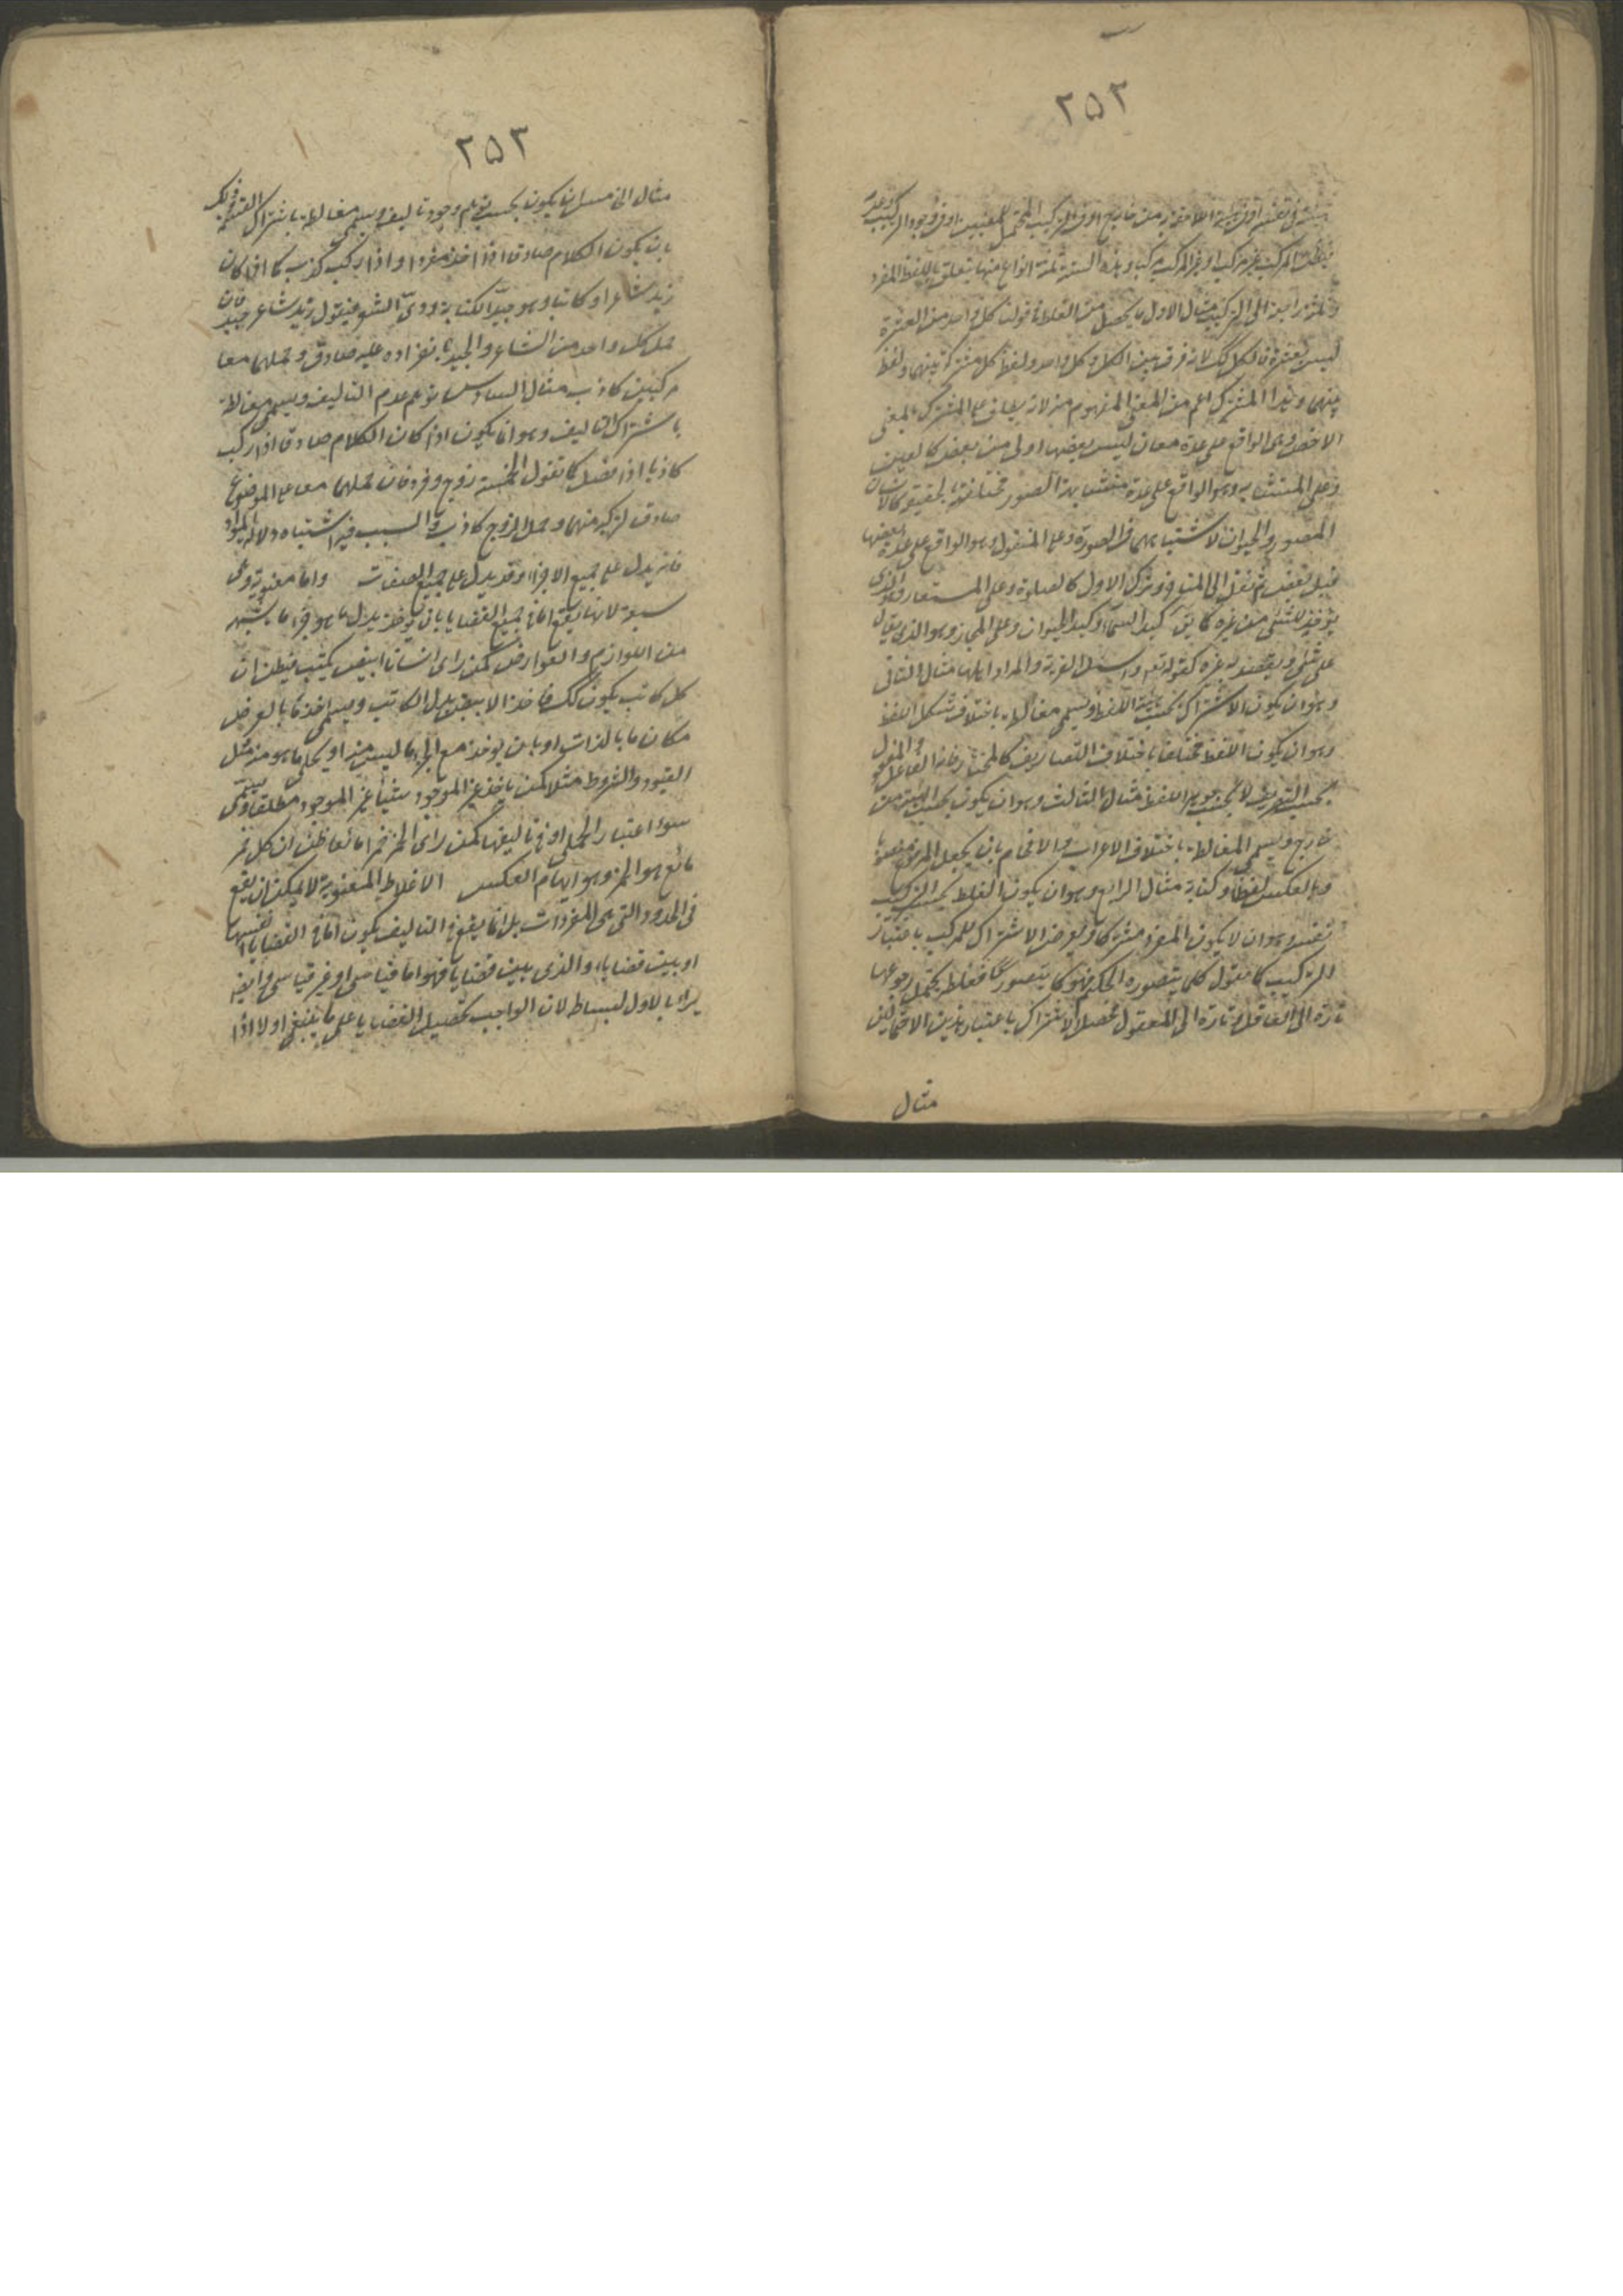 ٢٥٢
فى نفسه او فى هيئة اللاحقة به من خارج او فى التركيب المحتمل للمعنيين او فى وجود التركيب وعدمه
فيظن المركب غير مركب او غير المركب مركبا وهذه الستة ثلثة انواع منها يتعلق باللفظ المفرد
وثلثة راجعة الى التركيب مثال الاول ما يحصل من الغلط فى قولنا كل واحد من العشرة
ليس بعشرة فالكل كك لانه فرق بين الكل وكل واحد ولفظ كل مشتركة بينهما ولفظ
بينهما وهذا المشترك اعم من المعنى المفهوم منه لانه يطلق على المشترك بالمعنى
الاخص وهى الواقع على عدة معان ليس بعضها اولى من بعض كالعين
وعلى المتشابه وهو الواقع على عدة متشابهة الصور مختلفة الحقيقة كالانسان
المصور والحيوان لاشتباههما فى الصورة وعلى المنقول وهو الواقع على عدة بعضها
قبل بعض ثم نقل الى المتاخر وترك الاول كالصلوة وعلى المستعار وهو الذى
يؤخذ للشئ من غيره كما يق كبد السماء وكبد الحيوان وعلى المجاز وهو الذى يقال
على شئ ويقصد به غيره كقوله تعم واسئل القرية والمراد اهلها مثال الثانى
وهو ان يكون الاشتراك بحسب هيئة اللفظ ويسمى مغالطة باختلاف شكل اللفظ
وهو ان يكون اللفظ مختلفا باختلاف التصاريف كالمختار فانه الفاعل والمفعول
بحسب التصريف لا بحسب جوهر اللفظ مثال الثالث وهو ان يكون بحسب الهيئة من
خارج ويسمى المغالطة باختلاف الاعراب والاعجام بان يجعل المرفوع منصوبا
وبالعكس لفظا وكتابة مثال الرابع وهو ان يكون الغلط بحسب التركيب
نفسه وهو ان لا يكون المفرد مشتركا ويعرض الاشتراك للمركب باعتبار
التركيب كما نقول كلما يتصوره الحكيم فهو كما يتصور فغلطه يحتمل رجوعها
تارة الى العاقل وتارة الى المعقول فحصل الاشتراك باعتبار هذين الاحتمالين
مثال
٢٥٣
مثال الخامس ان يكون بحسب توهم وجود تاليف ويسمى مغالطة باشتراك القسمة وذلك
بان يكون الكلام صادقا اذا اخذ مفردا واذا ركب كذب كما اذا كان
زيد شاعرا وكاتبا وهو جيد الكتابة وردى الشعر فنقول زيد شاعر جيد فان
حمل كل واحد من الشاعر والجيد بانفراده عليه صادق وحملهما معا
مركبين كاذب مثال السادس توهم عدم التاليف ويسمى مغالطة
باشتراك التاليف وهو ان يكون اذا كان الكلام صادقا اذا ركب
كاذبا اذا فصل كما نقول الخمسة زوج وفرد فان حملهما معا على الموضوع
صادق لتركبه منهما وحمل الزوج كاذب والسبب فيه اشتباه دلالة الواو
فانه يدل على جميع الاجزاء وقد يدل على جميع الصفات واما معنوية وهى
سبعة لانها يقع اما فى جميع القضايا بان يؤخذ بدل ما هو جزء ما يشبهه
من اللوازم والعوارض كمن راى انسانا ابيض يكتب فيظن ان
كل كاتب يكون كك فاخذ الابيض بدل الكاتب ويسمى اخذ ما بالعرض
مكان ما بالذات او بان يوخذ مع الجزء ما ليس منه او يحلى ما هو منه مثل
القيود والشروط مثلا كمن ياخذ غير الموجود شيئا غير الموجود مطلقا ويسمى
سوء اعتبار الحمل او فى تاليفها كمن راى الخمر احمر مائعا ظن ان كل احمر
مائع هو الخمر وهو ايهام العكس الاغلاط المعنوية لا يمكن ان يقع
فى الحدود التى هى المفردات بل انما يقع فى التاليف يكون اما فى القضايا انفسها
او بين قضايا والذى بين قضايا فهو اما قياسى او غير قياسى وانه
يراد بالاول لبساطه لان الواجب تحصيل القضايا على ما ينبغى اولا اذا